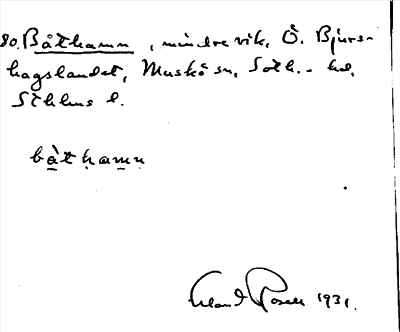 80. Båthamn, mindre vik, Ö. Bjurs-
hagslandet, Muskö sn, Soth. hd,
Sthlms l.
båthamn
Erland Rosell 1931.